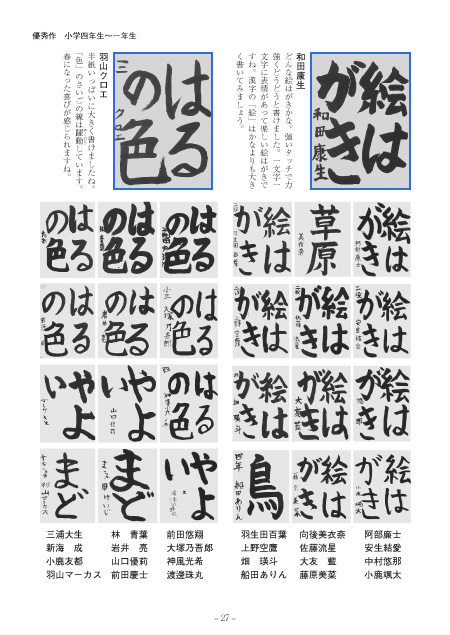 優秀作　小学四年生～一年生
和田康生
どんな絵はがきかな。強いタッチで力
強くどうどうと書けました。一文字一
文字に表情があって楽しい絵はがきで
すね。漢字の「絵」はかなよりも大き
く書いてみましょう。
絵は
がき
和田康生
羽山クロエ
半紙いっぱいに大きく書けましたね。
「色」のさいごの線は躍動しています。
春になった喜びが感じられますね。
はる
の色
三
クロエ
絵は
がき
草原
美衣奈
絵は
がき
はる
の色
はる
の色
はる
の色
絵は
がき
絵は
がき
絵は
がき
はる
の色
はる
の色
はる
の色
絵は
がき
絵は
がき
絵は
がき
はる
の色
やよ
い
やよ
い
絵は
がき
絵は
がき
鳥
四年 船田ありん
やよ
い
まど
まど
阿部廉士
安生結愛
中村悠那
小鹿颯太
向後美衣奈
佐藤流星
大友　藍
藤原美菜
羽生田百葉
上野空鷹
畑　瑛斗
船田ありん
前田悠翔
大塚乃吾郎
神風光希
渡邊珠丸
林　青葉
岩井　亮
山口優莉
前田慶士
三浦大生
新海　成
小鹿友都
羽山マーカス
- 27 -